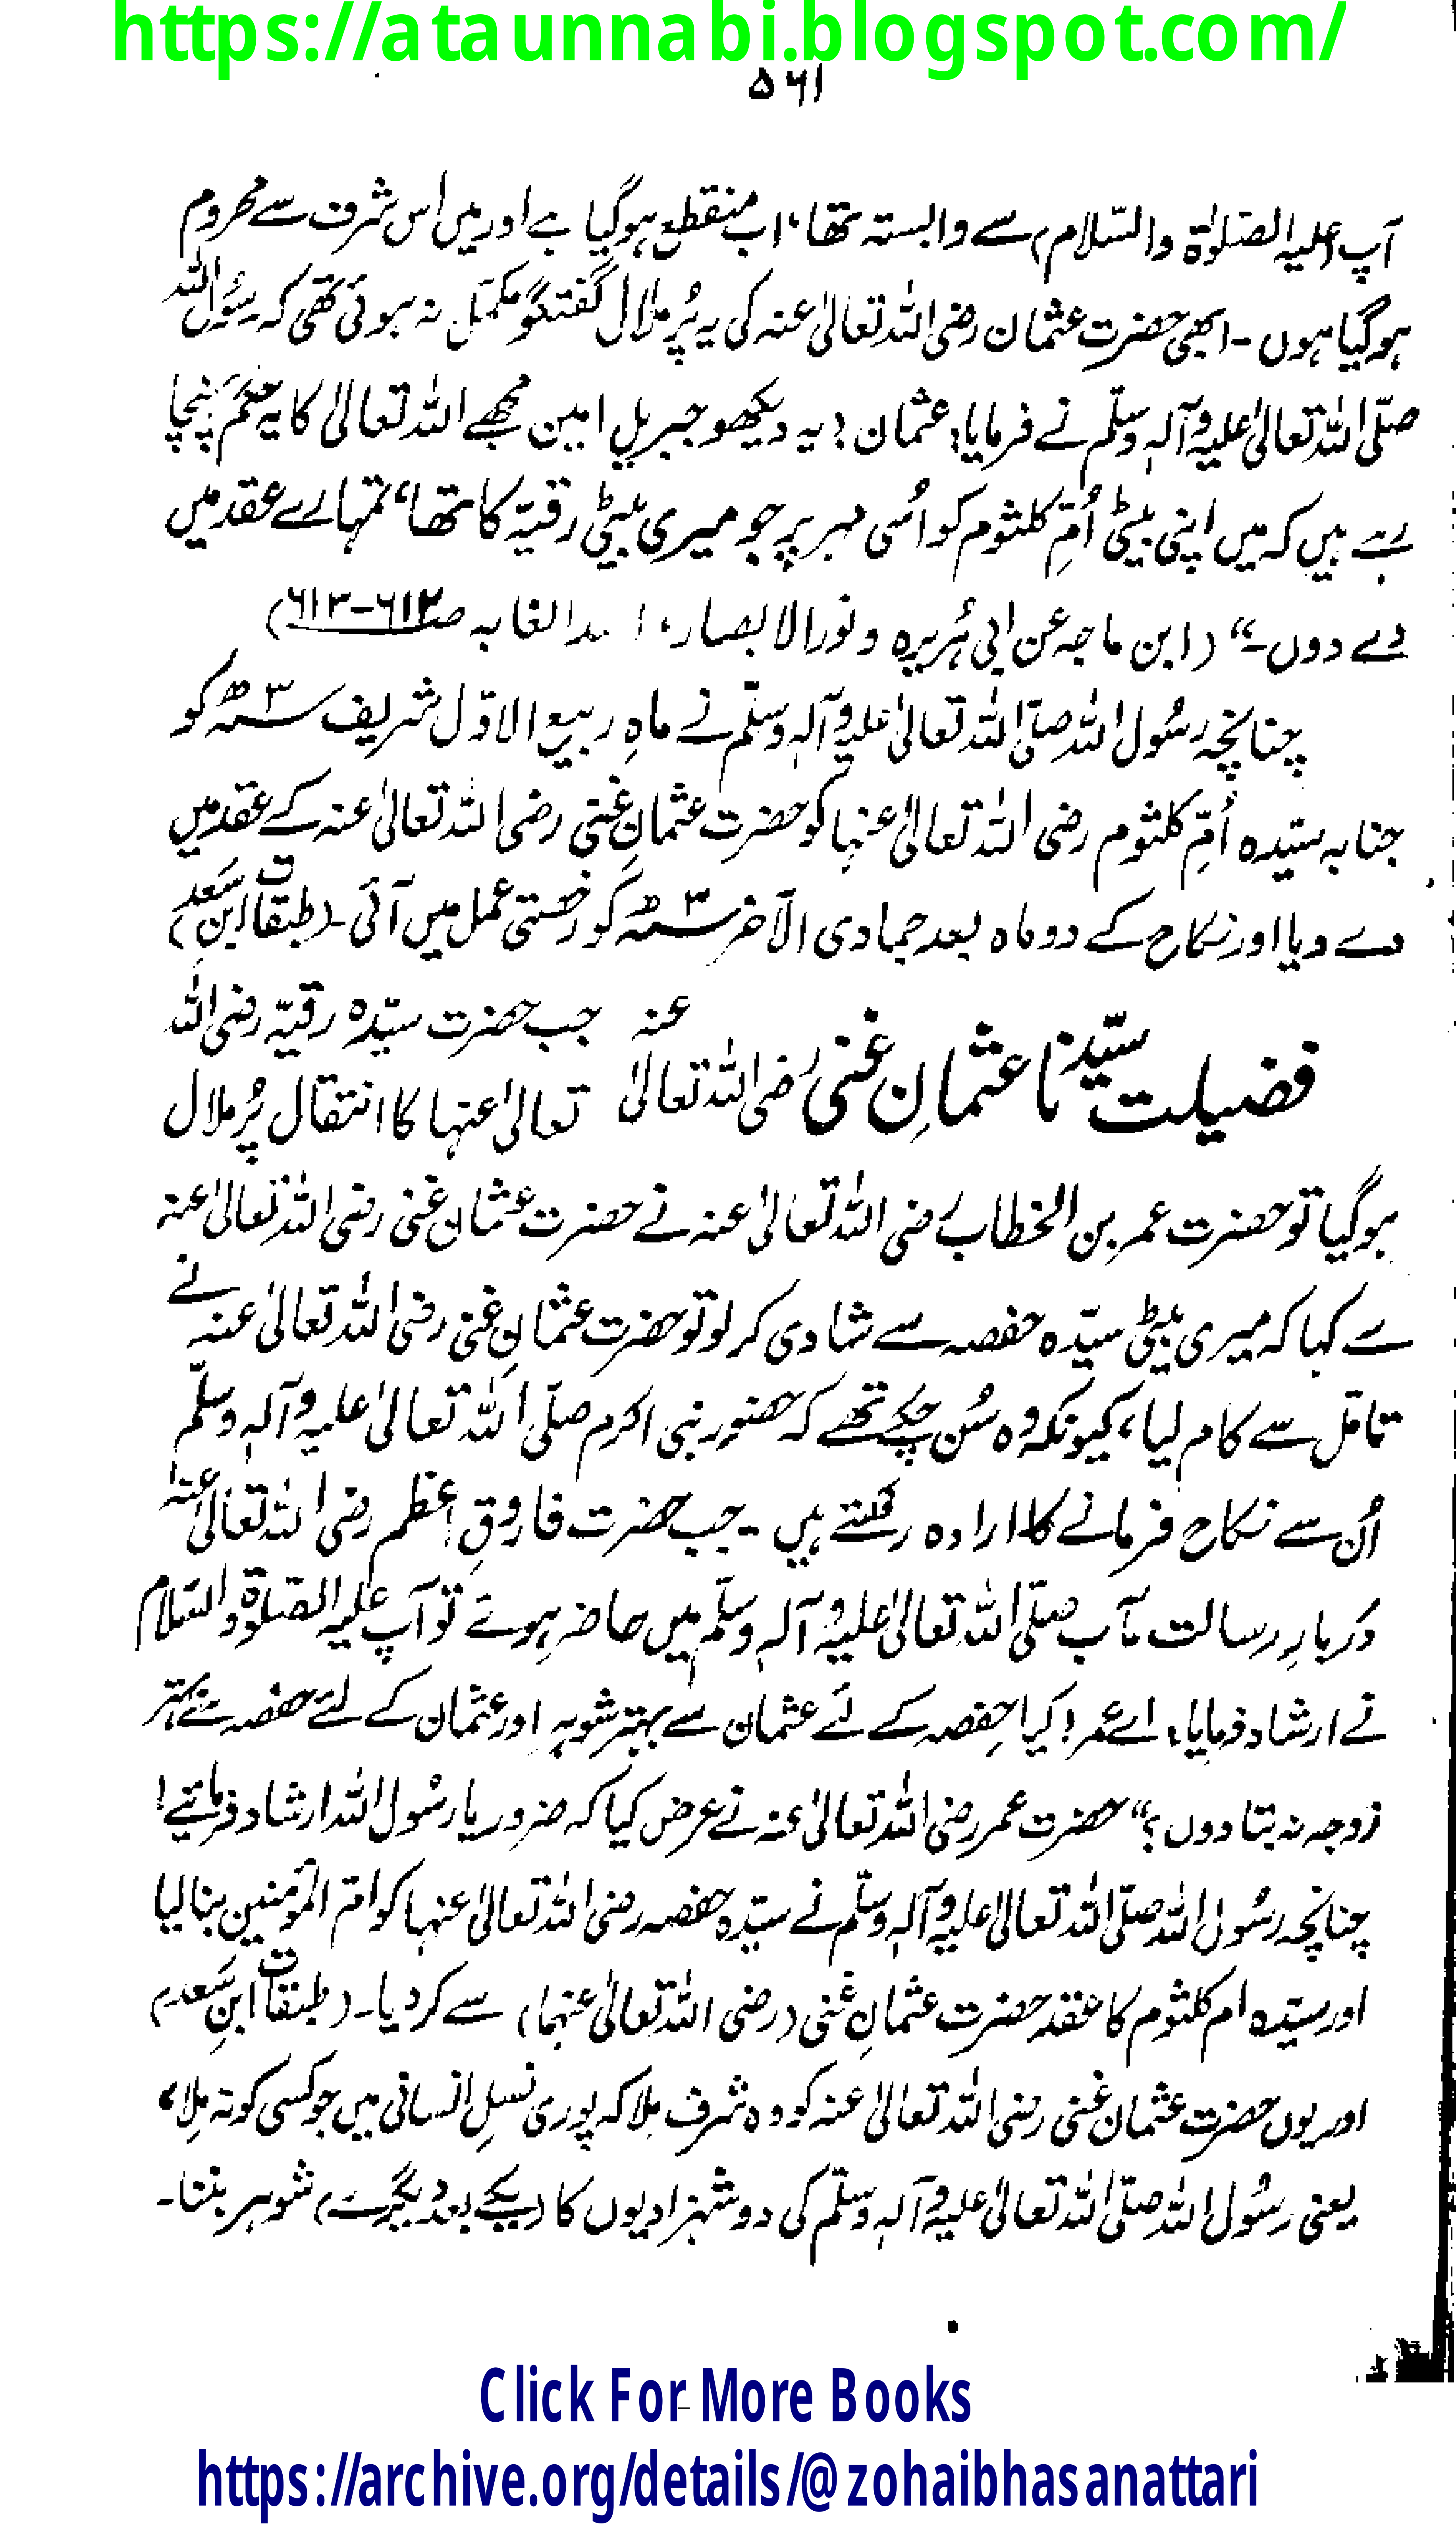 https://ataunnabi.blogspot.com/
۵۶۱
آپ (علیہ الصّلوٰۃ والسّلام) سے وابستہ تھا، اب منقطع ہوگیا ہے اور میں اس شرف سے محروم
ہوگیا ہوں ۔ ابھی حضرت عثمان رضی اللہ تعالیٰ عنہ کی یہ پُر ملال گفتگو مکمّل نہ ہوئی تھی کہ رسُول اللہ
صلّی اللہ تعالیٰ علیہ وآلہٖ وسلّم نے فرمایا: عثمان! یہ دیکھو جبریل امین مجھے اللہ تعالیٰ کا یہ حکم پہنچا
رہے ہیں کہ میں اپنی بیٹی اُمِّ کلثوم کو اُسی مہر پر جو میری بیٹی رقیّہ کا تھا، تمہارے عقد میں
دے دوں۔“ (ابن ماجہ عن ابی ہُریرہ و نور الابصار، اسد الغابہ صـ ۶۱۲-۶۱۳)
چنانچہ رسُول اللہ صلّی اللہ تعالیٰ علیہ وآلہٖ وسلّم نے ماہِ ربیع الاوّل شریف ۳ھ کو
جنابہ سیّدہ اُمِّ کلثوم رضی اللہ تعالیٰ عنہا کو حضرت عثمانِ غنی رضی اللہ تعالیٰ عنہ کے عقد میں
دے دیا اور نکاح کے دو ماہ بعد جمادی الآخر ۳ھ کو رخصتی عمل میں آئی۔ (طبقات ابنِ سَعد)
فضیلت سیّدنا عثمانِ غنی رضی اللہ تعالیٰ عنہ
جب حضرت سیّدہ رقیّہ رضی اللہ
تعالیٰ عنہا کا انتقال پُر ملال
ہوگیا تو حضرت عمر بن الخطاب رضی اللہ تعالیٰ عنہ نے حضرت عثمان غنی رضی اللہ تعالیٰ عنہ
سے کہا کہ میری بیٹی سیّدہ حفصہ سے شادی کر لو تو حضرت عثمانِ غنی رضی اللہ تعالیٰ عنہ نے
تامّل سے کام لیا، کیونکہ وہ سُن چکے تھے کہ حضورِ نبی اکرم صلّی اللہ تعالیٰ علیہ وآلہٖ وسلّم
اُن سے نکاح فرمانے کا ارادہ رکھتے ہیں ۔ جب حضرت فاروقِ اعظم رضی اللہ تعالیٰ عنہ
دربارِ رسالت مآب صلّی اللہ تعالیٰ علیہ وآلہٖ وسلّم میں حاضر ہوئے تو آپ علیہ الصّلوٰۃ والسّلام
نے ارشاد فرمایا، اے عمر! کیا حفصہ کے لئے عثمان سے بہتر شوہر اور عثمان کے لئے حفصہ سے بہتر
زوجہ نہ بتا دوں؟“ حضرت عمر رضی اللہ تعالیٰ عنہ نے عرض کیا کہ ضرور یا رسُول اللہ ارشاد فرمائیے!
چنانچہ رسُول اللہ صلّی اللہ تعالیٰ علیہ وآلہٖ وسلّم نے سیّدہ حفصہ رضی اللہ تعالیٰ عنہا کو امّ المؤمنین بنا لیا
اور سیّدہ ام کلثوم کا عقد حضرت عثمانِ غنی (رضی اللہ تعالیٰ عنہما) سے کر دیا۔ (طبقات ابنِ سَعد)
اور یوں حضرت عثمان غنی رضی اللہ تعالیٰ عنہ کو وہ شرف مِلا کہ پوری نسلِ انسانی میں جو کسی کو نہ مِلا،
یعنی رسُول اللہ صلّی اللہ تعالیٰ علیہ وآلہٖ وسلّم کی دو شہزادیوں کا (یکے بعد دیگرے) شوہر بننا۔
Click For More Books
https://archive.org/details/@zohaibhasanattari